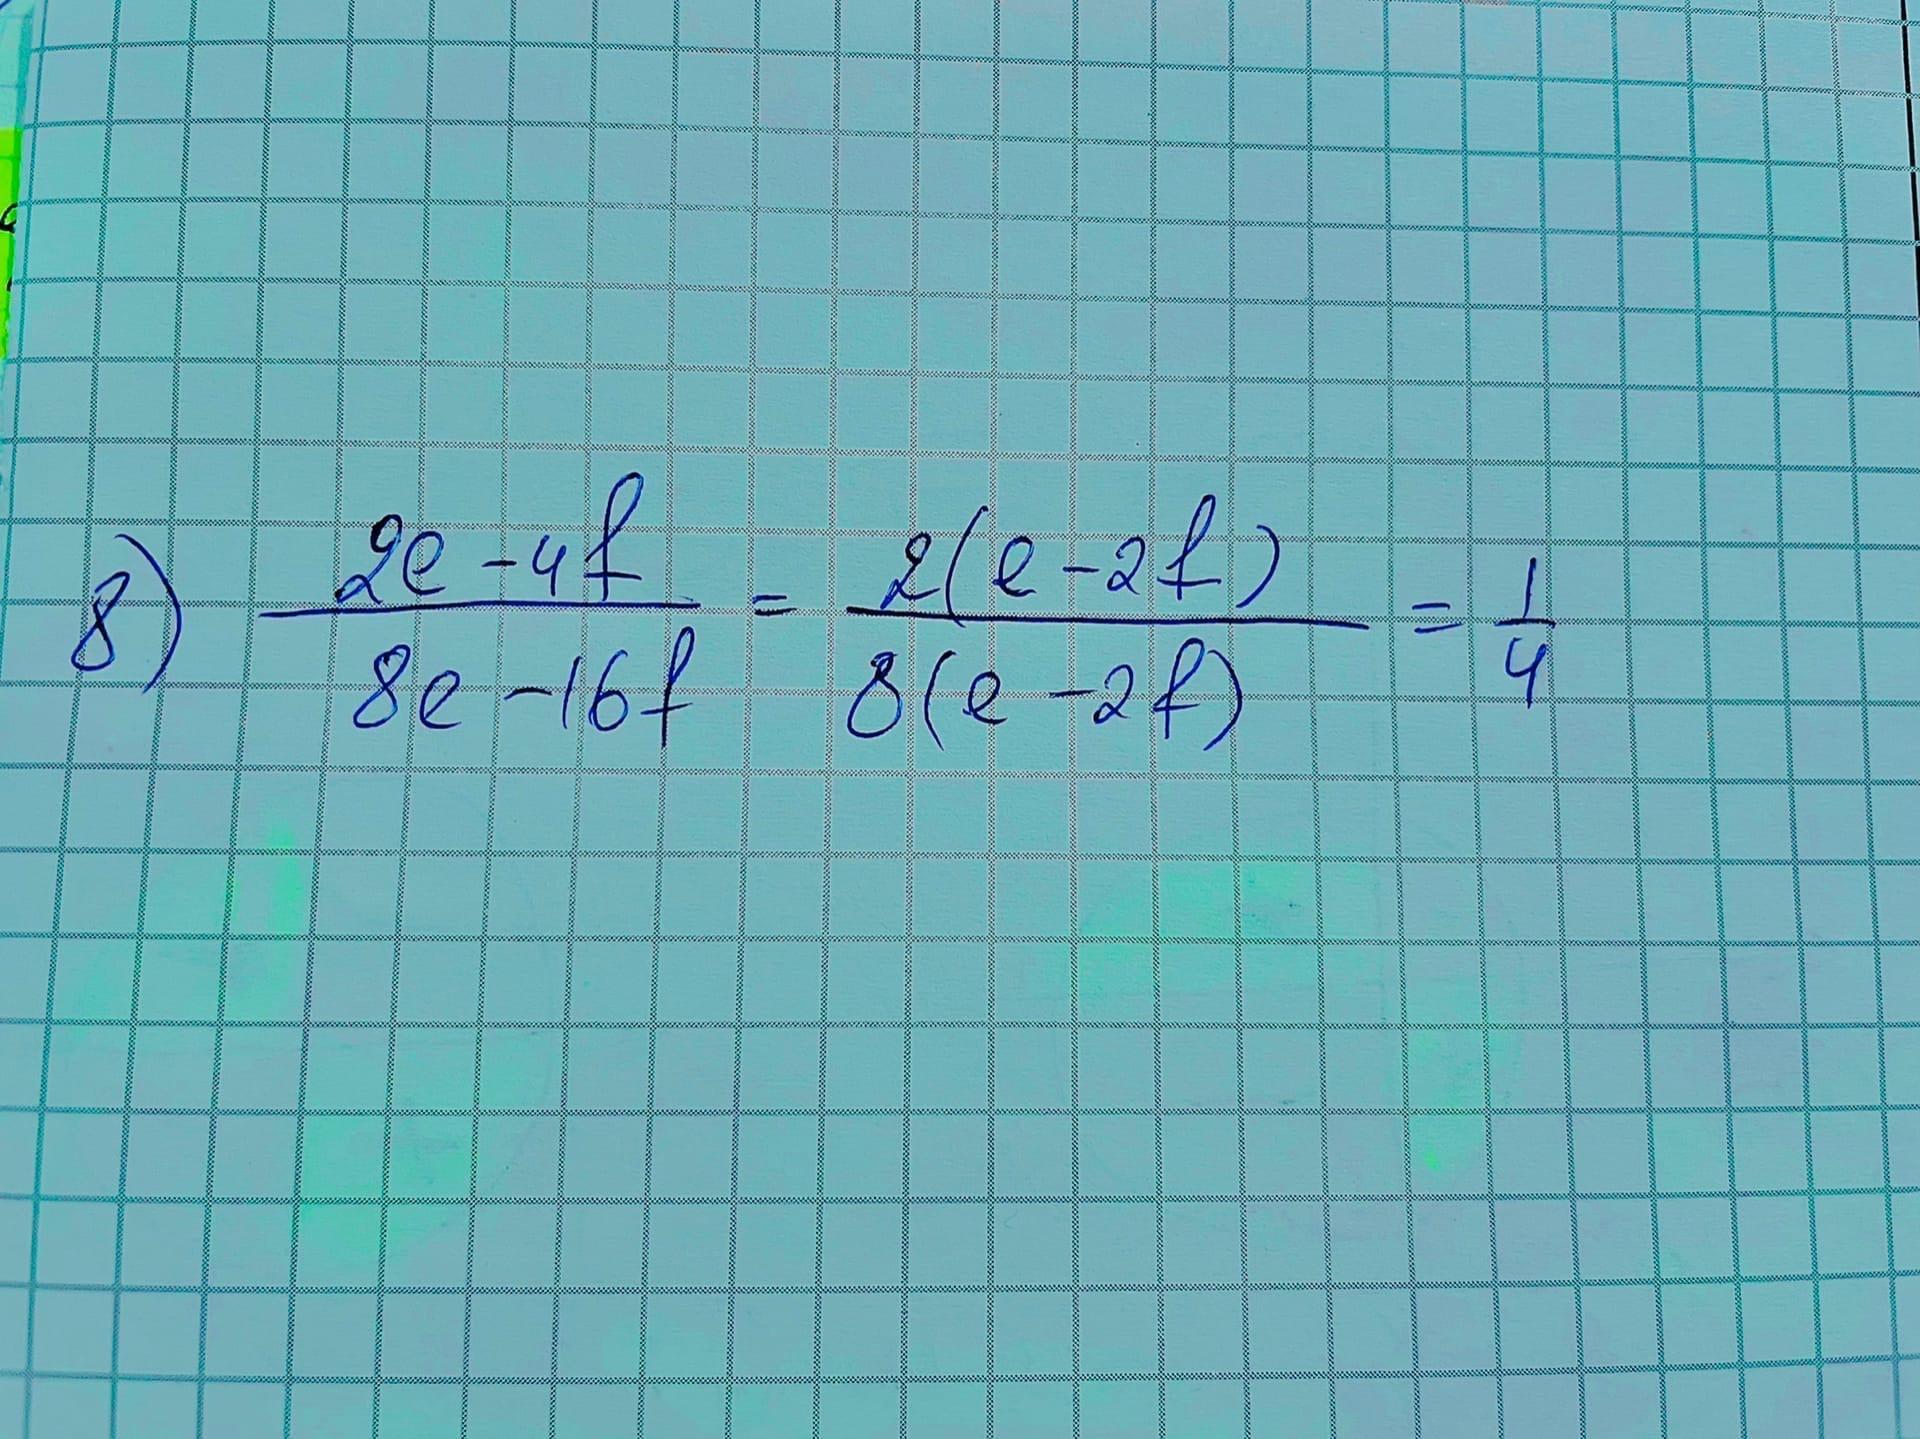 8) (2e-4f)/(8e-16f) = 2(e-2f)/8(e-2f) = 1/4